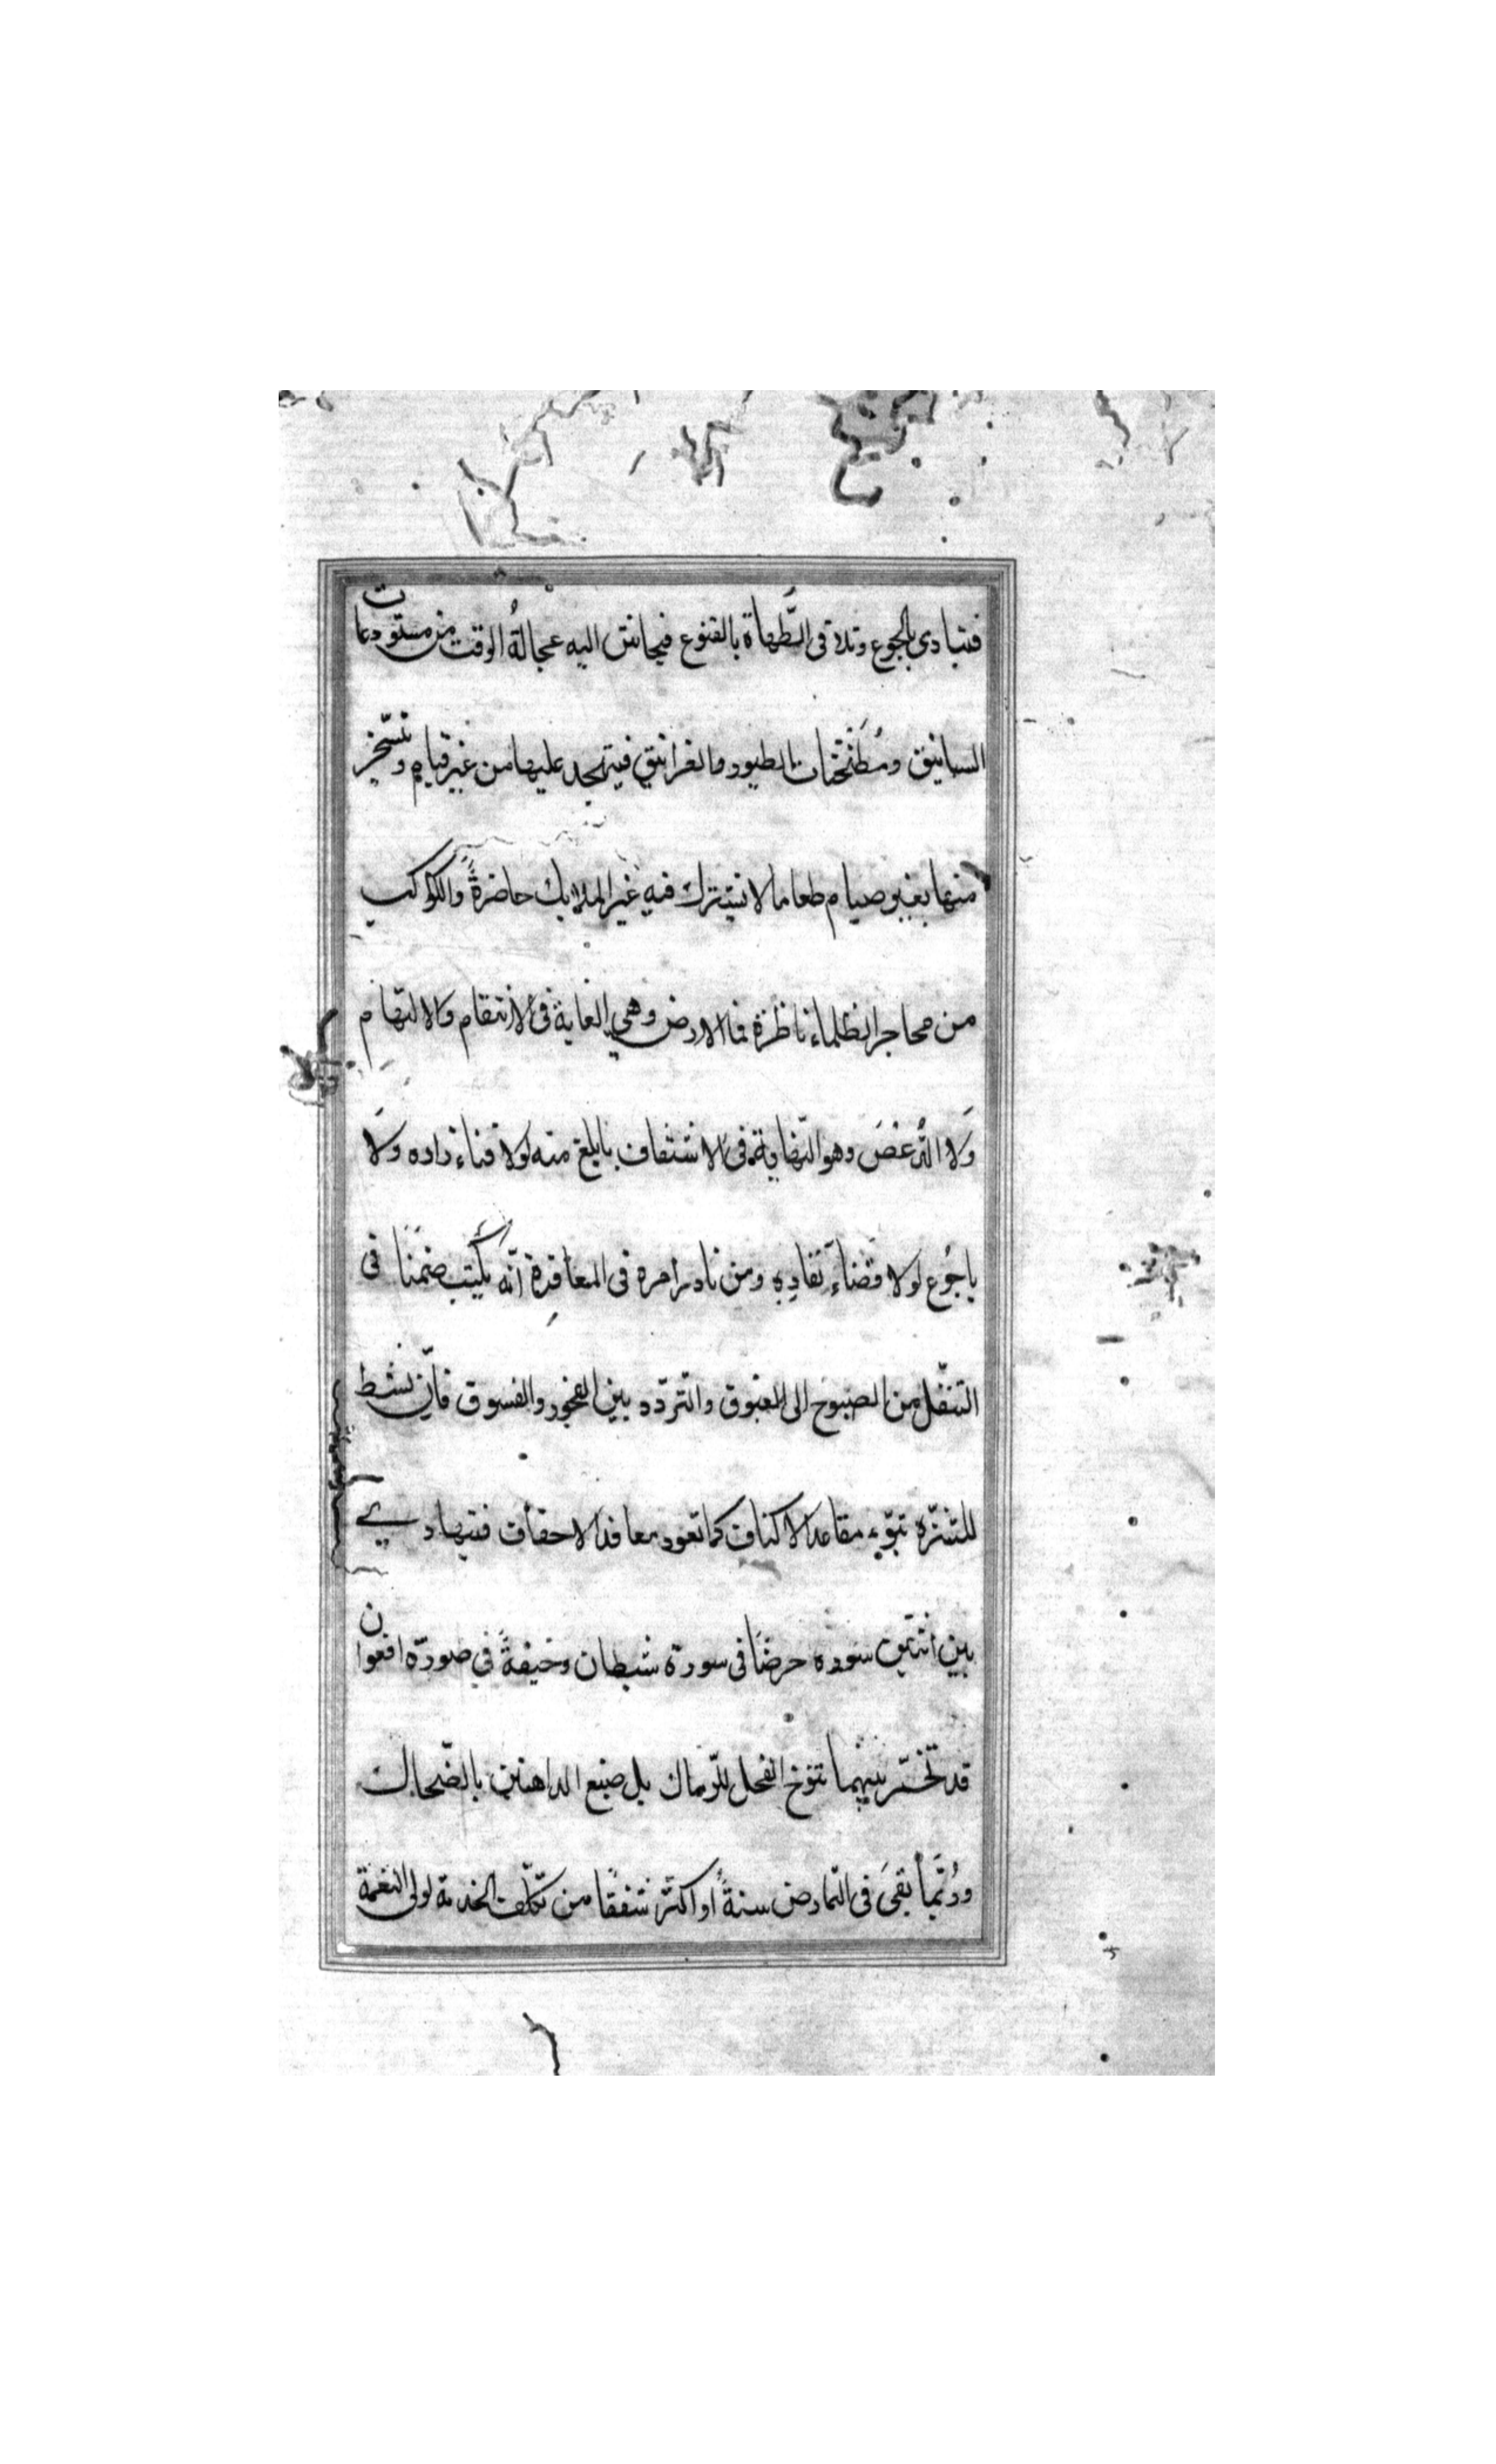 فيتبادى بالجوع وتلاقى الطَّهاة بالقنوع فيجانش اليه عجالةُ الوقت من مستودعات
السبانيق ومُطَنْجَثات الطيور والغرانيق فيتهجد عليها من غير قيام وتسّخر
منها بغير صيام طعاما لا تشترك فيه غير الملايك حاضرةً والكواكب
من محاجر الظلماء ناظرة فما الارض وهي الغاية فى الانتقام والالتهام
وَلا الدُّ عْصَ وهو النّهاية فى الاشتفاف بابلغ منه لولا فناء زاده ولَا
باجُوع لولا قضاء نفادِهِ ومن نادر امره فى المعاقرة انّه يكتب ضَمَنًا فى
التنقّل من الصبوح الى الغبوق والتّردّد بين الفجور والفسوق فاِن نشط
للتنزّه تبوّء مقاعد الاكناف كما تعود معاقد الاحقاف فيتهادى
بين اثنين سوده حرضًا فى سورة شيطان وخيفةً في صورة افعوان
قد تخثّر بينهما تنوّخ الفحل للرّماك بل صنيع الداهنين بالضّحاك
ورُبَّما بقىَ فى التمارض سنةً او اكثر شفقًا من تكلّف الخدمة لولى النعمة